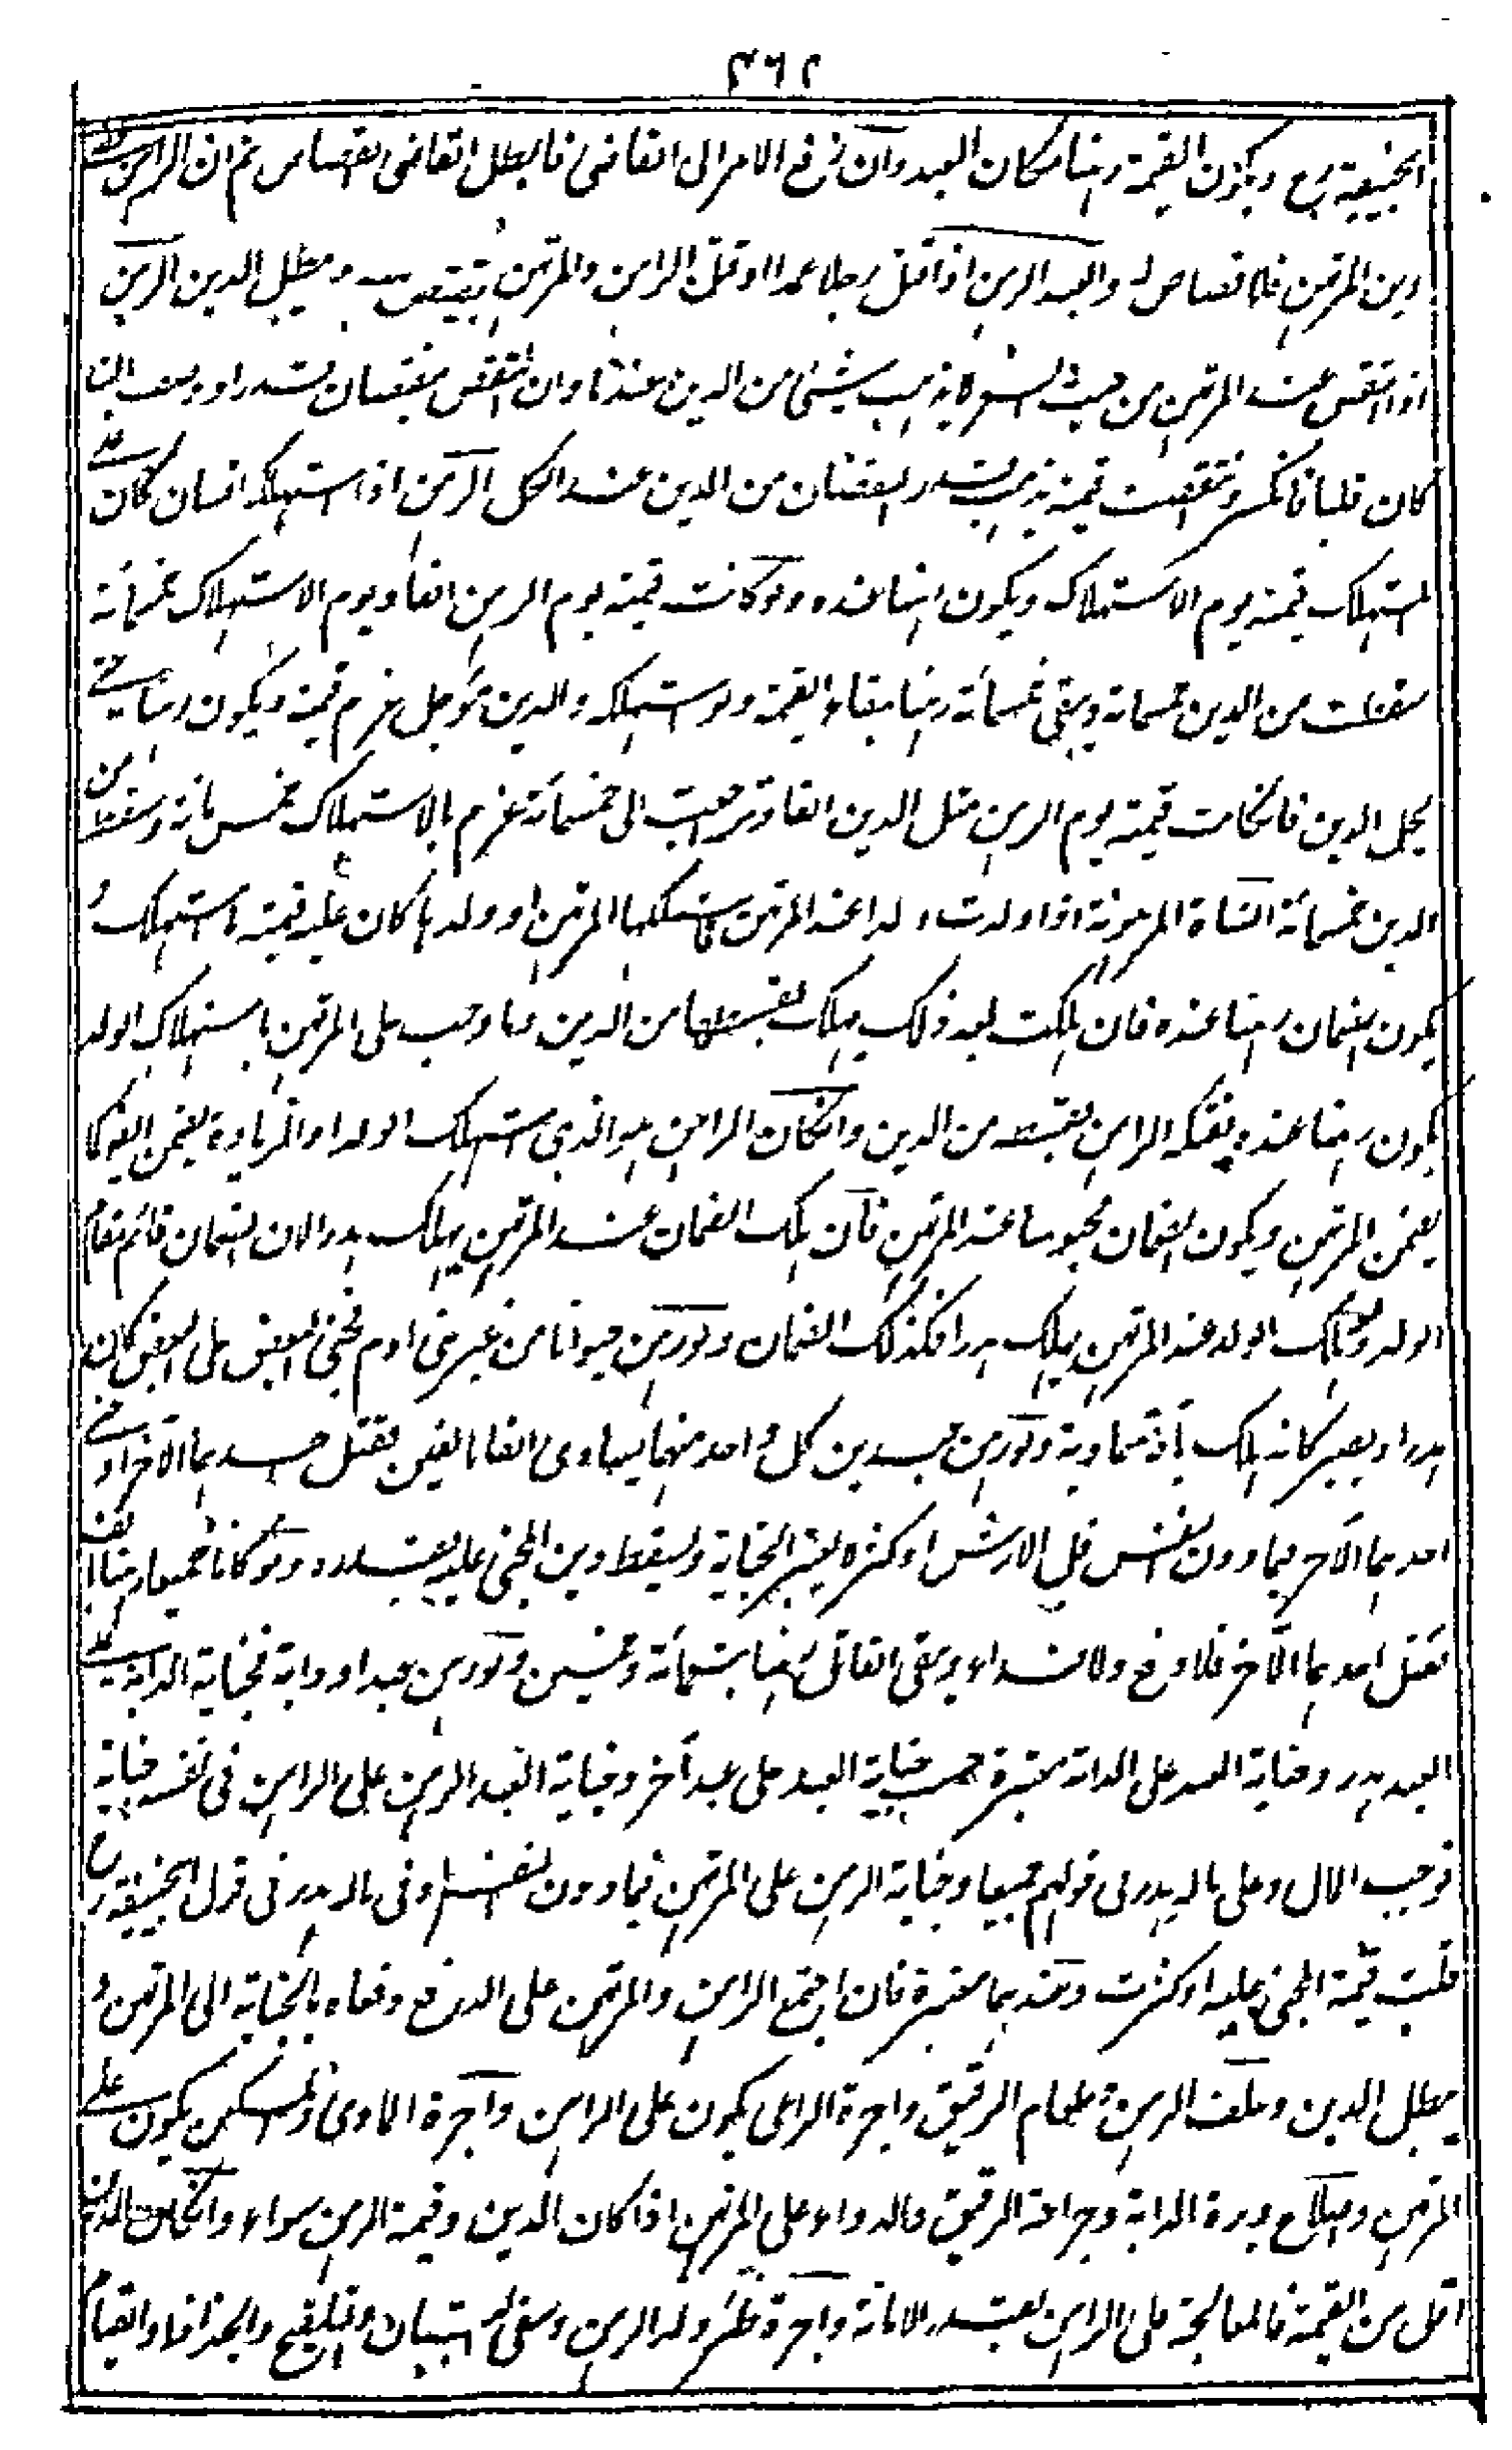 ٣٦٢
ابیحنیفة رح ویکون القیمة رهنا مکان العبد وان رفع الامر الی القاضی فابطل القاضی القصاص ثم ان الراهن قضی
دین المرتهن فلا قصاص له والعبد الرهن اذا قتل رجلا عمدا او قتل الراهن والمرتهن یقتص منه ویبطل الدین الرهن
اذا انتقص عند المرتهن من حیث السعر لا یذهب شیئ من الدین عندنا وان انتقص بنقصان قدر او وصف بان
کان قلبا فانکسر وانتقصت قیمته یذهب بقدر النقصان من الدین عند الکل الرهن اذا استهلکه انسان کان علی
المستهلک قیمته یوم الاستهلاک ویکون رهنا عنده ولو کانت قیمته یوم الرهن الفا ویوم الاستهلاک خمسمائة
سقطت من الدین خمسمائة ویبقی خمسمائة رهنا بقاء القیمة ولو استهلکه والدین مؤجل غرم قیمته ویکون رهنا حتی
یحل الدین فانکانت قیمته یوم الرهن مثل الدین الفا وتراجعت الی خمسمائة غرم بالاستهلاک خمس مائة وسقط من
الدین خمسمائة الشاة المرهونة اذا ولدت ولدا عند المرتهن فاستهلکها المرتهن او ولدها کان علیه قیمة ما استهلک و
یکون الضمان رهنا عنده فان هلکت بعد ذلک یهلک بقسطها من الدین وما وجب علی المرتهن باستهلاک الولد
یکون رهنا عنده ویفتکه الراهن بقسطه من الدین وانکان الراهن هو الذی استهلک الولد او الزیادة یضمن القیمة کما
یضمن المرتهن ویکون الضمان محبوسا عند المرتهن فان هلک الضمان عند المرتهن یهلک هدرا لان الضمان قائم مقام
الولد ولو هلک الولد عند المرتهن یهلک هدرا فکذلک الضمان ولو رهن حیوانا من غیر بنی ادم فجنی البعض علی البعض کان
هدرا ویصیر کانه هلک بآفة سماویة ولو رهن عبدین کل واحد منهما یساوی الفا بالفین فقتل احدهما الآخر او جنی
احدهما الآخر فیما دون النفس قل الارش او کثر لا یعتبر الجنایة ویسقط دین المجنی علیه بقدره ولو کانا جمیعا رهنا بالف
فقتل احدهما الآخر فلا دفع ولا فداء ویبقی القاتل رهنا بتسعمائة وخمسین ولو رهن عبدا ودابة فجنایة الدابة علی
العبد هدر وجنایة العبد علی الدابة معتبرة حسب جنایة العبد علی عبد آخر وجنایة العبد الرهن علی الراهن فی نفسه جنایة
توجب المال وعلی ماله هدر فی قولهم جمیعا وجنایة الرهن علی المرتهن فیما دون النفس او فی ماله هدر فی قول ابیحنیفة رح
قلت قیمة المجنی علیه او کثرت وعندهما معتبرة فان اجتمع الراهن والمرتهن علی الدفع دفعاه بالجنایة الی المرتهن و
یبطل الدین وعلف الرهن وطعام الرقیق واجرة الراعی یکون علی الراهن واجرة الماوی والمسکن یکون علی
المرتهن واصلاح دبرة الدابة وجراحة الرقیق والدواء علی المرتهن اذا کان الدین وقیمة الرهن سواء وانکان الدین
اقل من القیمة فالمعالجة علی الراهن بقدر الامانة واجرة ظئر ولد الرهن وسقی البستان والتلقیح والجذاذ والقیام